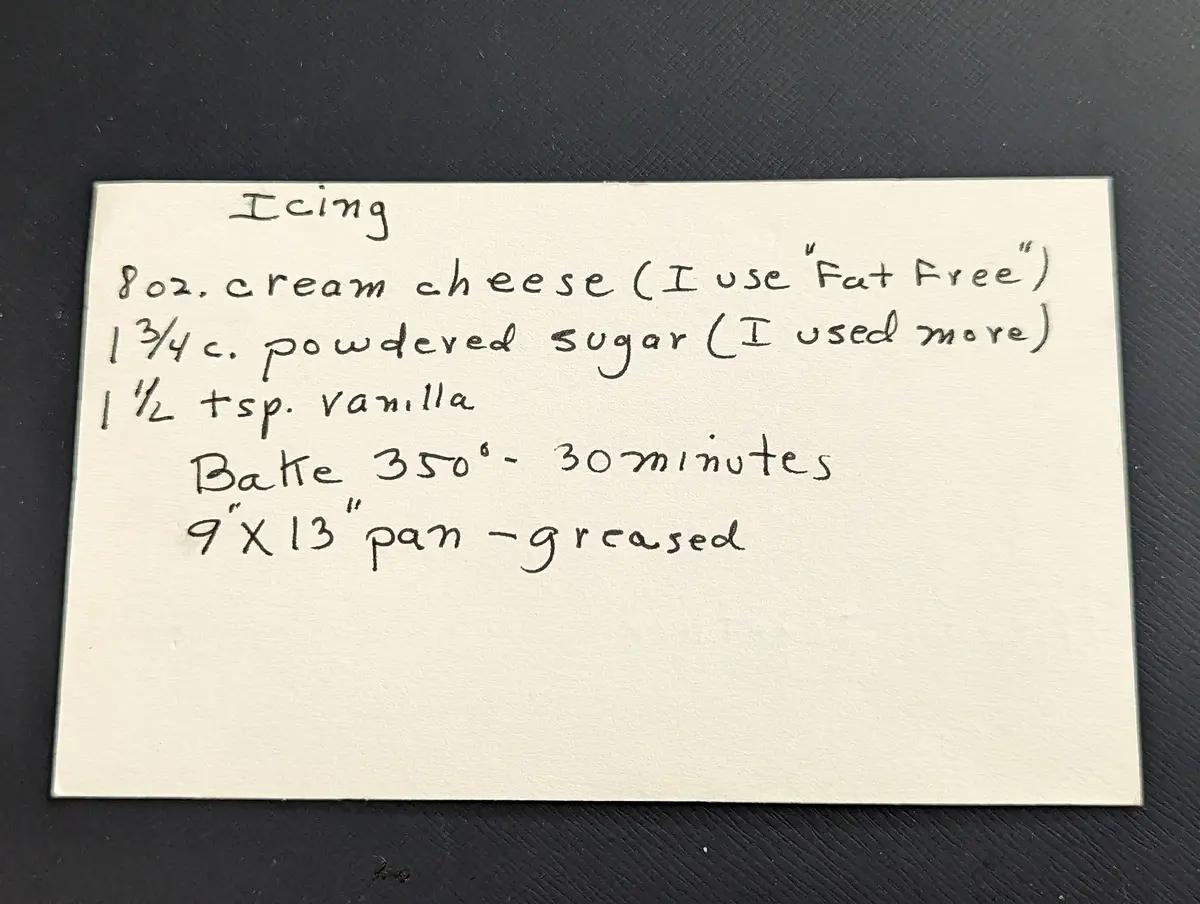 Icing
8 oz. cream cheese (I use "Fat Free")
1 3/4 c. powdered sugar (I used more)
1 1/2 tsp. vanilla
Bake 350° - 30 minutes
9" X 13" pan - greased